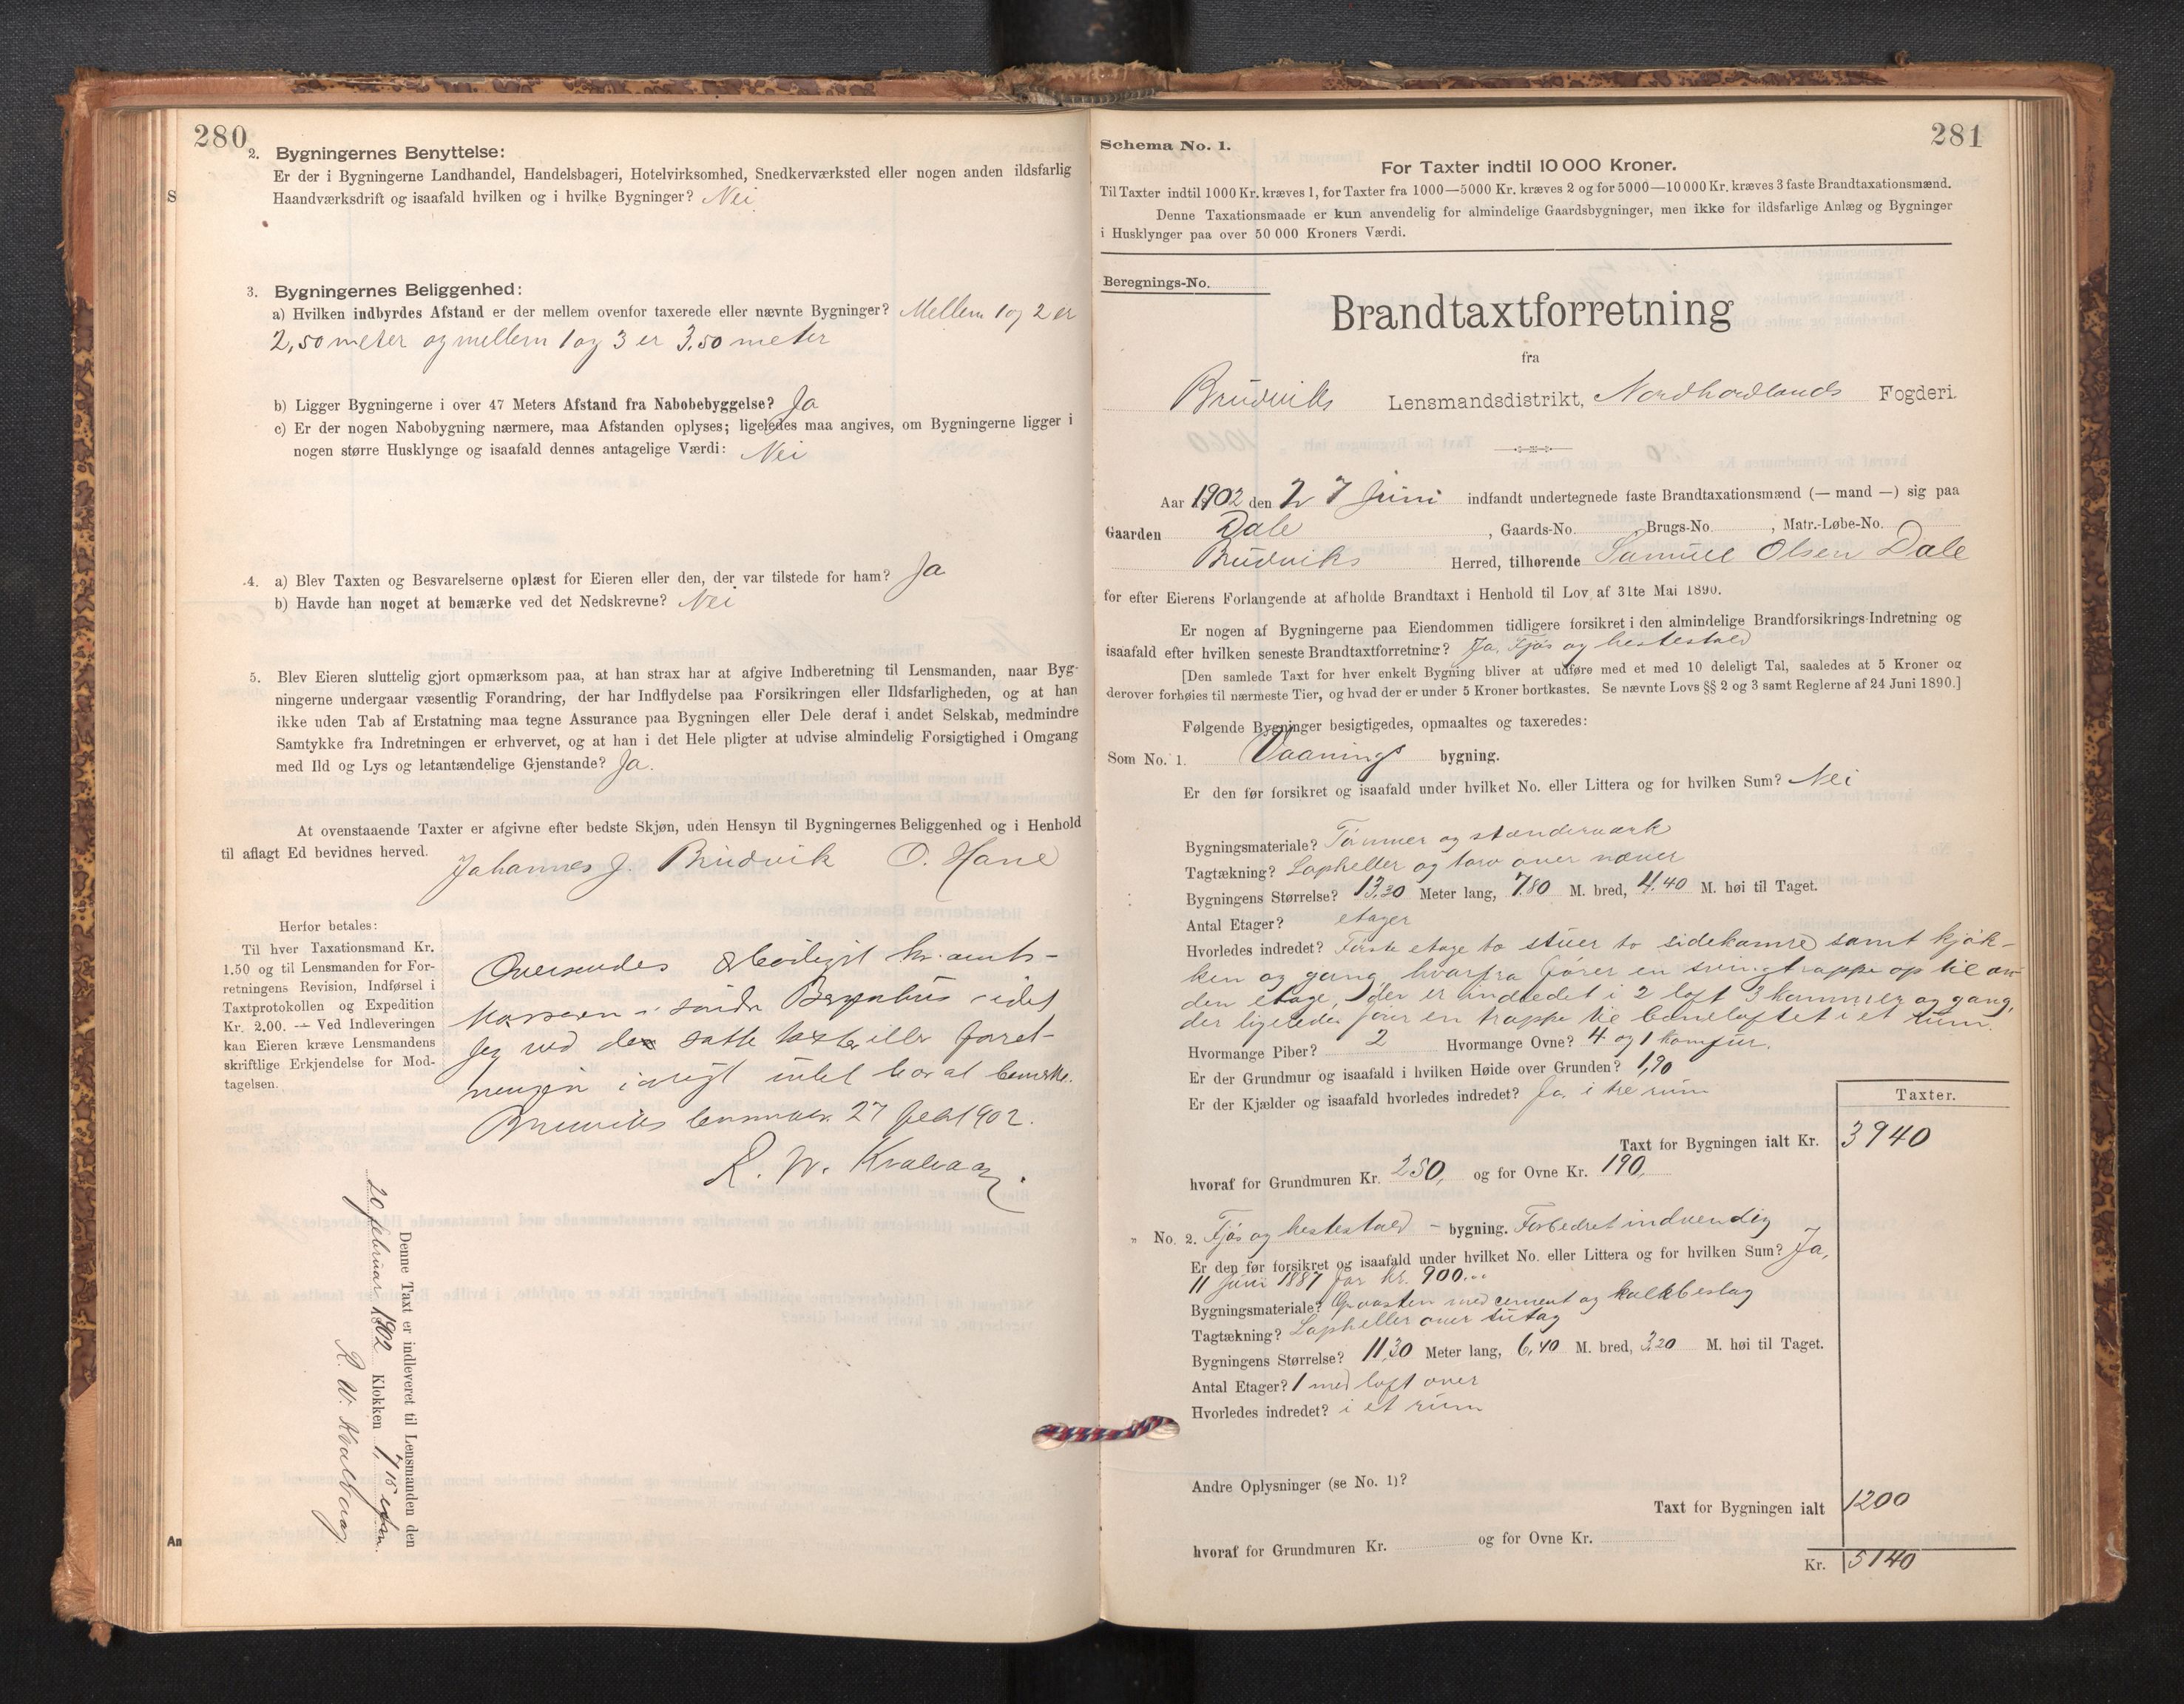 280
2. Bygningernes Benyttelse:
Er der i Bygningerne Landhandel, Handelsbageri, Hotelvirksomhed, Snedkerværksted eller nogen anden ildsfarlig
Haandværksdrift og isaafald hvilken og i hvilke Bygninger? Nei
S
3. Bygningernes Beliggenhed:
a) Hvilken indbyrdes Afstand er der mellem ovenfor taxerede eller nævnte Bygninger? Mellem 1 og 2 er
2,50 meter og mellem 1 og 3 er 3,50 meter
b) Ligger Bygningerne i over 47 Meters Afstand fra Nabobebyggelse? Ja
c) Er der nogen Nabobygning nærmere, maa Afstanden oplyses; ligeledes maa angives, om Bygningerne ligger i
nogen større Husklynge og isaafald dennes antagelige Værdi: Nei
4. a) Blev Taxten og Besvarelserne oplæst for Eieren eller den, der var tilstede for ham? Ja
b) Havde han noget at bemærke ved det Nedskrevne? Nei
5. Blev Eieren sluttelig gjort opmærksom paa, at han strax har at afgive Indberetning til Lensmanden, naar Byg-
ningerne undergaar væsentlig Forandring, der har Indflydelse paa Forsikringen eller Ildsfarligheden, og at han
ikke uden Tab af Erstatning maa tegne Assurance paa Bygningen eller Dele deraf i andet Selskab, medmindre
Samtykke fra Indretningen er erhvervet, og at han i det Hele pligter at udvise almindelig Forsigtighed i Omgang
med Ild og Lys og letantændelige Gjenstande? Ja.
At ovenstaaende Taxter er afgivne efter bedste Skjøn, uden Hensyn til Bygningernes Beliggenhed og i Henhold
til aflagt Ed bevidnes herved.
Johannes J. Brudvik O. Hane
Herfor betales:
Til hver Taxationsmand Kr.
1.50 og til Lensmanden for For-
retningens Revision, Indførsel i
Taxtprotokollen og Expedition
Kr. 2.00. — Ved Indleveringen
kan Eieren kræve Lensmandens
skriftlige Erkjendelse for Mod-
tagelsen.
Oversendes hr. amts-
i søndre Bergenhus idet
jeg ved de satte taxter eller forret-
ningen intet har at bemerke.
27 1902.
R. W. Kvalvaag.
Denne Taxt er indleveret til Lensmanden den
20 februar 1902 Klokken 1,15 efm.
R. W. Kvalvaag.
An
281
Schema No. 1.
For Taxter indtil 10 000 Kroner.
Til Taxter indtil 1000 Kr. kræves 1, for Taxter fra 1000—5000 Kr. kræves 2 og for 5000—10 000 Kr. kræves 3 faste Brandtaxationsmænd.
Denne Taxationsmaade er kun anvendelig for almindelige Gaardsbygninger, men ikke for ildsfarlige Anlæg og Bygninger
i Husklynger paa over 50 000 Kroners Værdi.
Beregnings-No.
Brandtaxtforretning
fra
Brudviks Lensmandsdistrikt, Nordhordlands Fogderi.
Aar 1902 den 27 Juni indfandt undertegnede faste Brandtaxationsmænd (— mand —) sig paa
Gaarden Dale, Gaards-No. , Brugs-No. , Matr.-Løbe-No.
Brudviks Herred, tilhørende Samuel Olsen Dale
for efter Eierens Forlangende at afholde Brandtaxt i Henhold til Lov af 31te Mai 1890.
Er nogen af Bygningerne paa Eiendommen tidligere forsikret i den almindelige Brandforsikrings-Indretning og
isaafald efter hvilken seneste Brandtaxtforretning? Ja, Fjøs og hestestald
[Den samlede Taxt for hver enkelt Bygning bliver at udføre med et med 10 deleligt Tal, saaledes at 5 Kroner og
derover forhøies til nærmeste Tier, og hvad der er under 5 Kroner bortkastes. Se nævnte Lovs §§ 2 og 3 samt Reglerne af 24 Juni 1890.]
Følgende Bygninger besigtigedes, opmaaltes og taxeredes:
Som No. 1. Vaanings bygning.
Er den før forsikret og isaafald under hvilket No. eller Littera og for hvilken Sum? Nei
Bygningsmateriale? Tømmer og standerværk
Tagtækning? Lapheller og torv over næver
Bygningens Størrelse? 13,30 Meter lang, 7,80 M. bred, 4,40 M. høi til Taget.
Antal Etager? etager
Hvorledes indredet? Første etage to stuer to sidekamre samt kjøk-
ken og gang, hvorfra fører en svingtrappe op til an-
den etage, der er indredet i 2 loft 3 kammer og gang,
der ligeledes fører en trappe til baneloftet i et rum.
Hvormange Piber? 2 Hvormange Ovne? 4 og 1 komfur.
Er der Grundmur og isaafald i hvilken Høide over Grunden? 1,90
Er der Kjælder og isaafald hvorledes indredet? Ja, i tre rum
Taxter.
Taxt for Bygningen ialt Kr. 3940
hvoraf for Grundmuren Kr. 250, og for Ovne Kr. 190,
„ No. 2. Fjøs og hestestald - bygning. Forbedret indvendig
Er den før forsikret og isaafald under hvilket No. eller Littera og for hvilken Sum? Ja,
11 Juni 1887 for kr. 900...
Bygningsmateriale? Graasten med cement og kalkbeslag
Tagtækning? Lapheller over sutag
Bygningens Størrelse? 11,30 Meter lang, 6,40 M. bred, 3,20 M. høi til Taget.
Antal Etager? 1 med loft over
Hvorledes indredet? i et rum
Andre Oplysninger (se No. 1)?
Taxt for Bygningen ialt 1200
hvoraf for Grundmuren Kr. og for Ovne Kr.
Kr. 5140